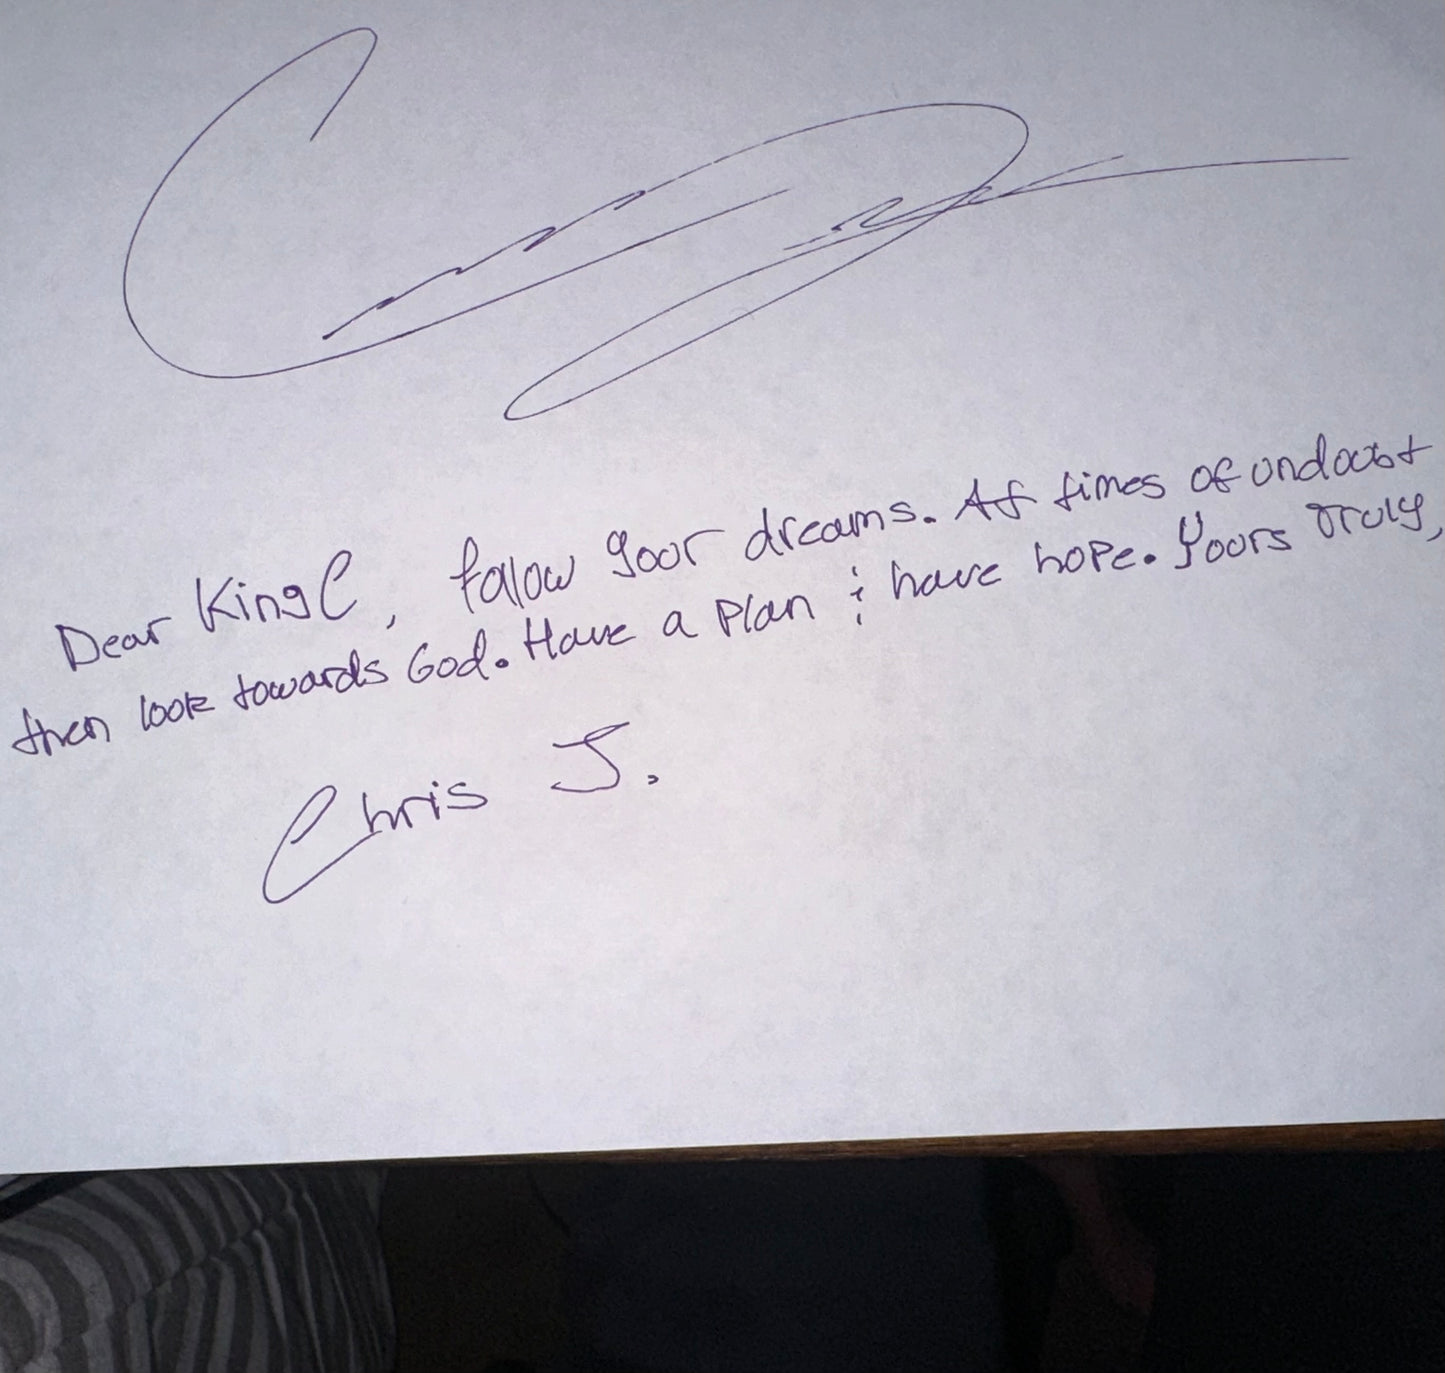 Dear KingC, follow your dreams. At times of undoubt
then look towards God. Have a plan & have hope. Yours Truly,
Chris J.